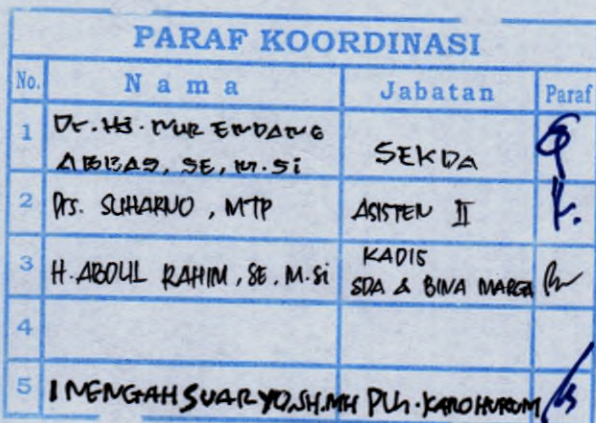 PARAF KOORDINASI
No. Nama Jabatan Paraf
1 Dr. Hj. NUR ENDANG
ABBAS, SE, M.Si SEKDA
2 Drs. SUHARNO, MTP ASISTEN II
3 H. ABDUL RAHIM, SE, M.Si KADIS
SDA & BINA MARGA
4
5 I NENGAH SUARYO.SH.MH PLh. KARO HUKUM